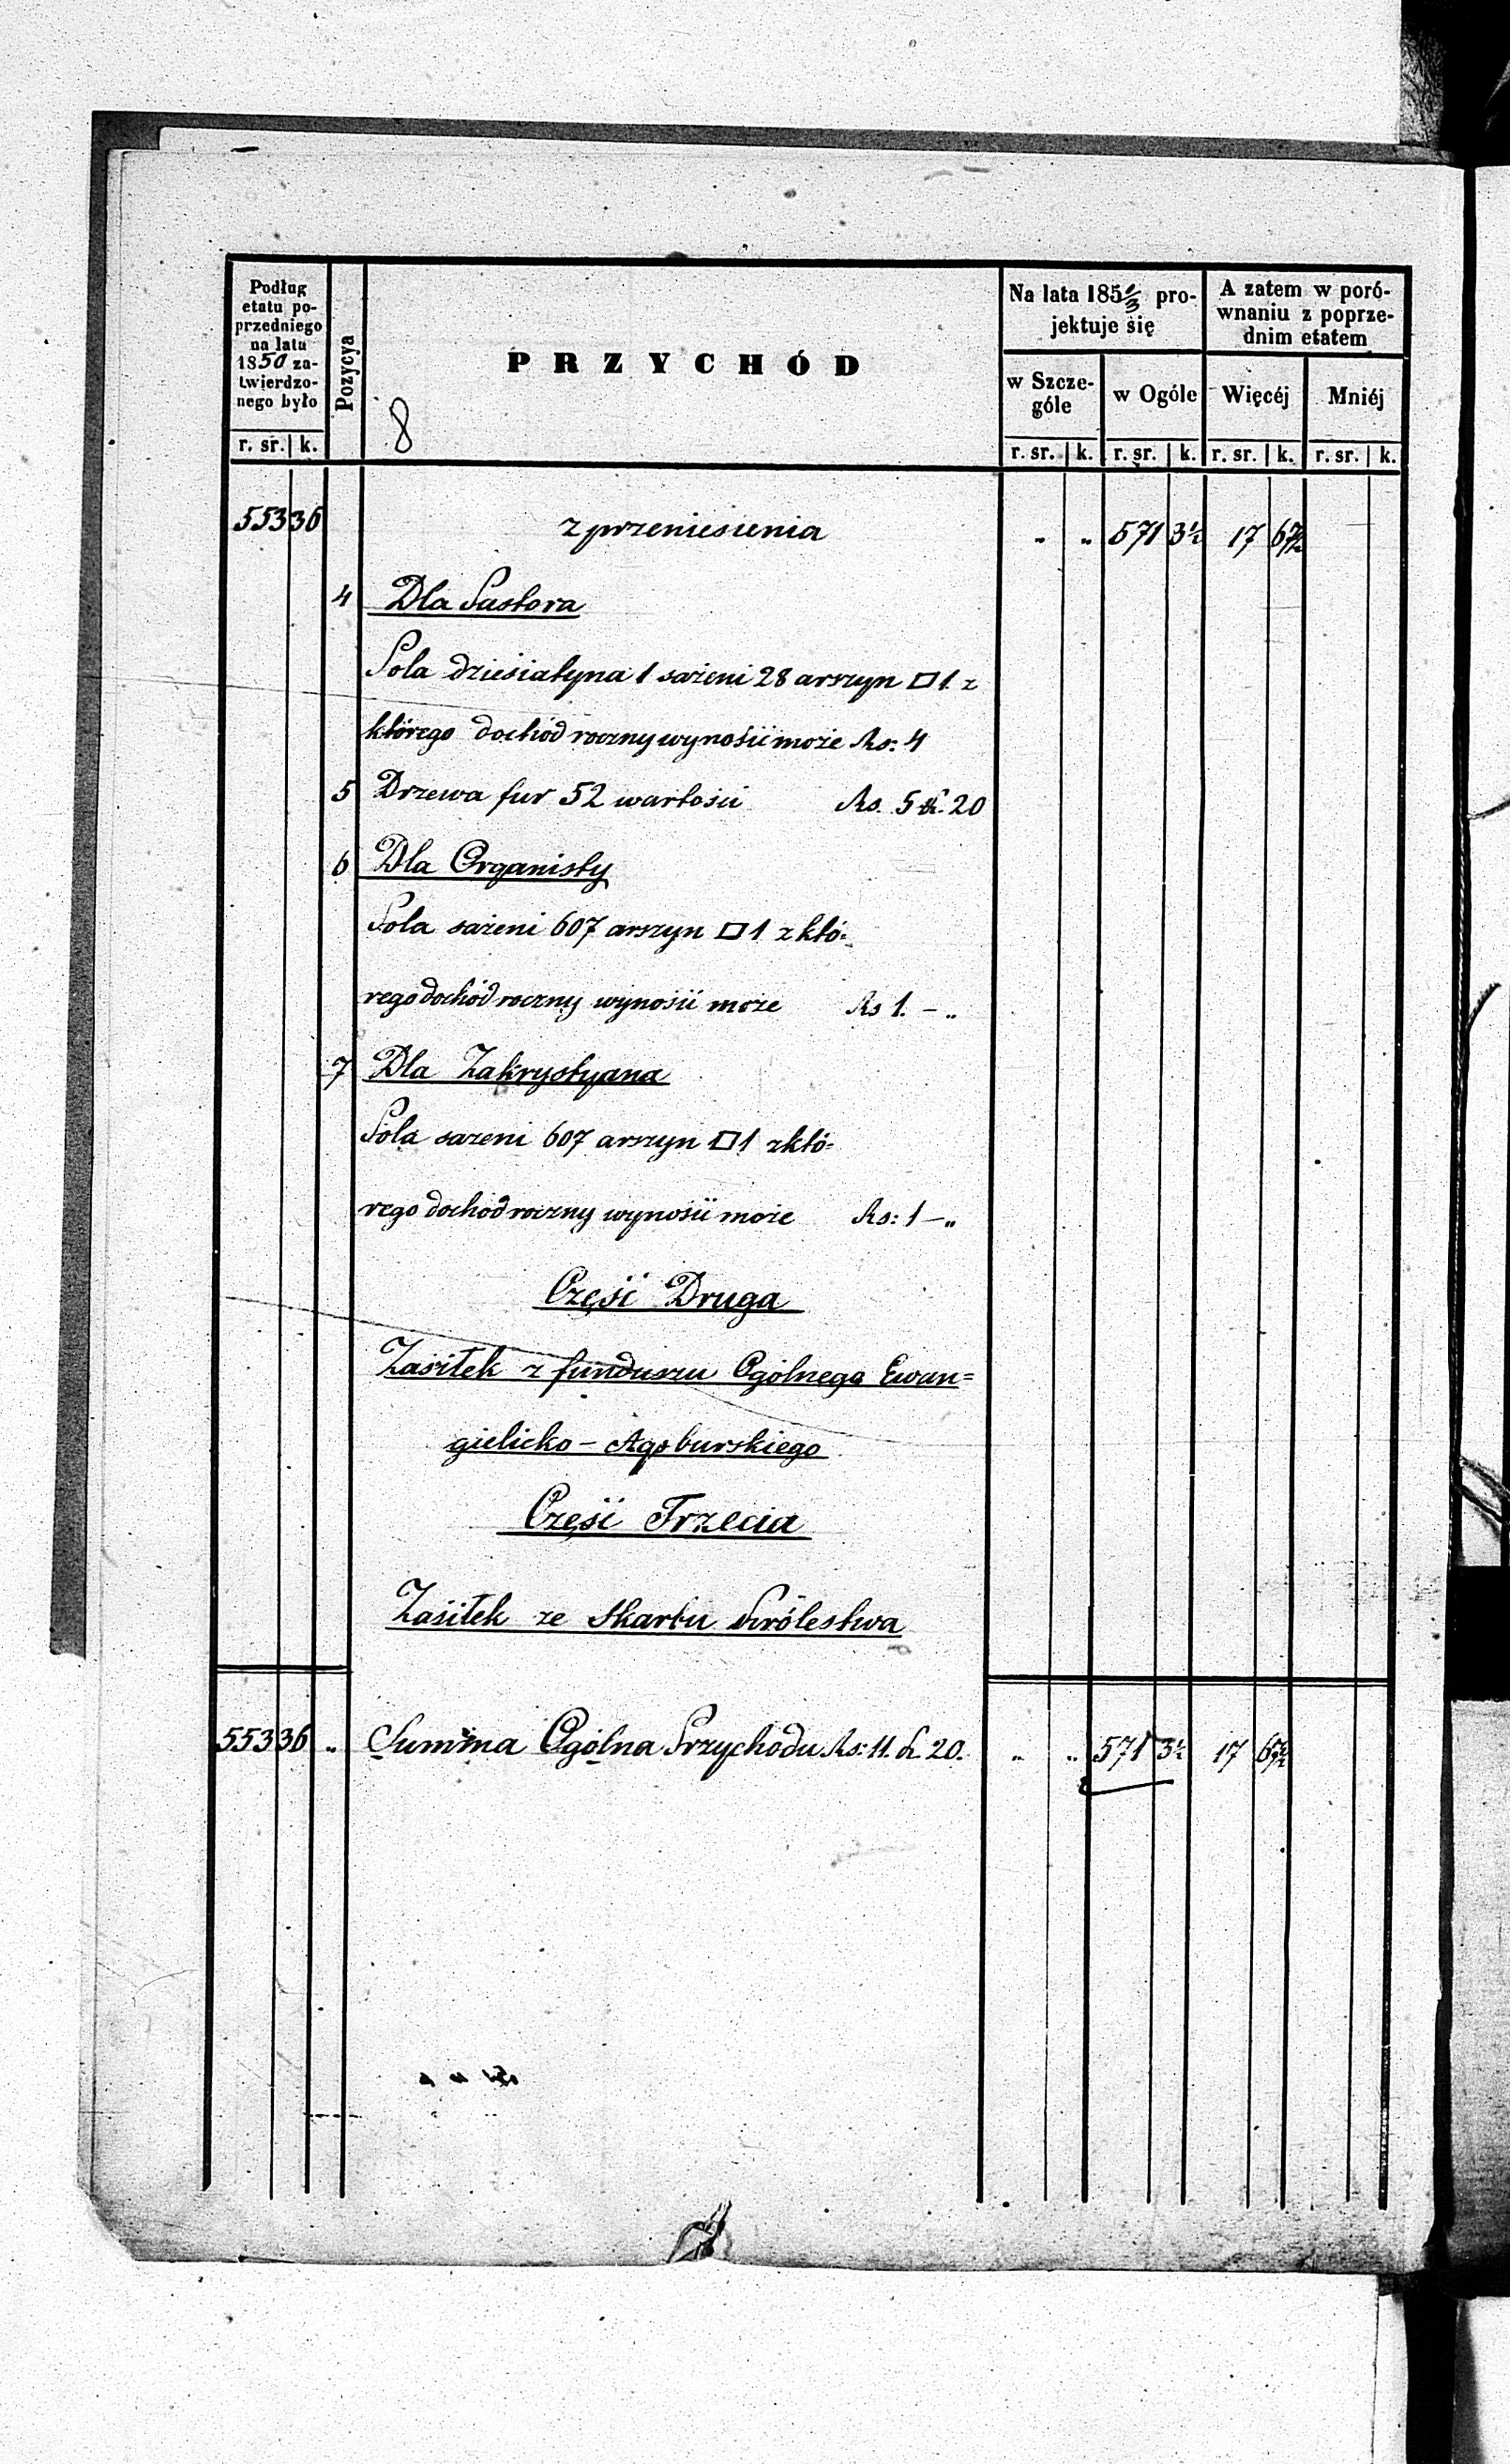 Podług
etatu po-
przedniego
na lata
1850 za-
twierdzo-
nego było
r. sr. k.
Pozycya
PRZYCHÓD
8
Na lata 185 1/3 pro-
jektuje się
w Szcze-
góle
r. sr. k.
w Ogóle
r. sr. k.
A zatem w poró-
wnaniu z poprze-
dnim etatem
Więcéj
r. sr. k.
Mniéj
r. sr. k.
553 36 z przeniesienia „ „ 571 3½ 17 67½
4 Dla Pastora
Pola dziesiatyna 1 sażeni 28 arszyn □ 1. z
którego dochód roczny wynosić może Rs: 4
5 Drzewa fur 52 wartości Rs. 5 k. 20
6 Dla Organisty
Pola sażeni 607 arszyn □ 1 z któ=
rego dochód roczny wynosić może Rs 1. – „
7 Dla Zakrystyana
Pola sażeni 607 arszyn □ 1 z któ=
rego dochód roczny wynosić może Rs: 1 – „
Część Druga
Zasiłek z funduszu Ogólnego Ewan=
gielicko – Agsburskiego
Część Trzecia
Zasiłek ze Skarbu Królestwa
553 36 „ Summa Ogólna Przychodu Rs: 11. k. 20. „ „ 571 3½ 17 67½